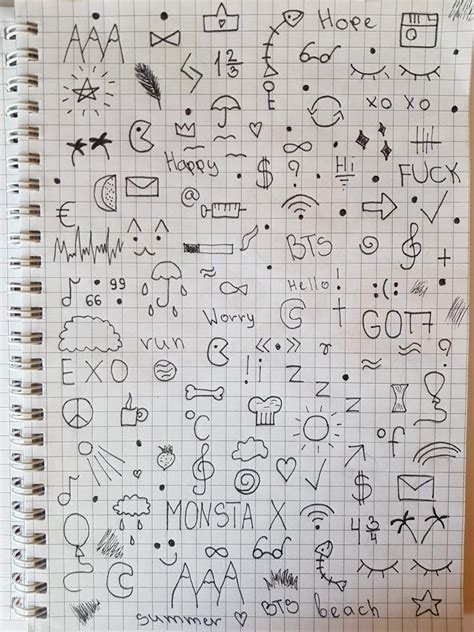 AAA
Hope
1 2/3
xo xo
Happy
$ ?
Hi
FUCK
@
€
BTS
+
66 99
Hello!
:(:
Worry
C
GOT7
EXO
run
« » r
?
! i
z
z
z
°C
°f
$
MONSTA X
4 3/4
C C
AAA
BTS
beach
summer